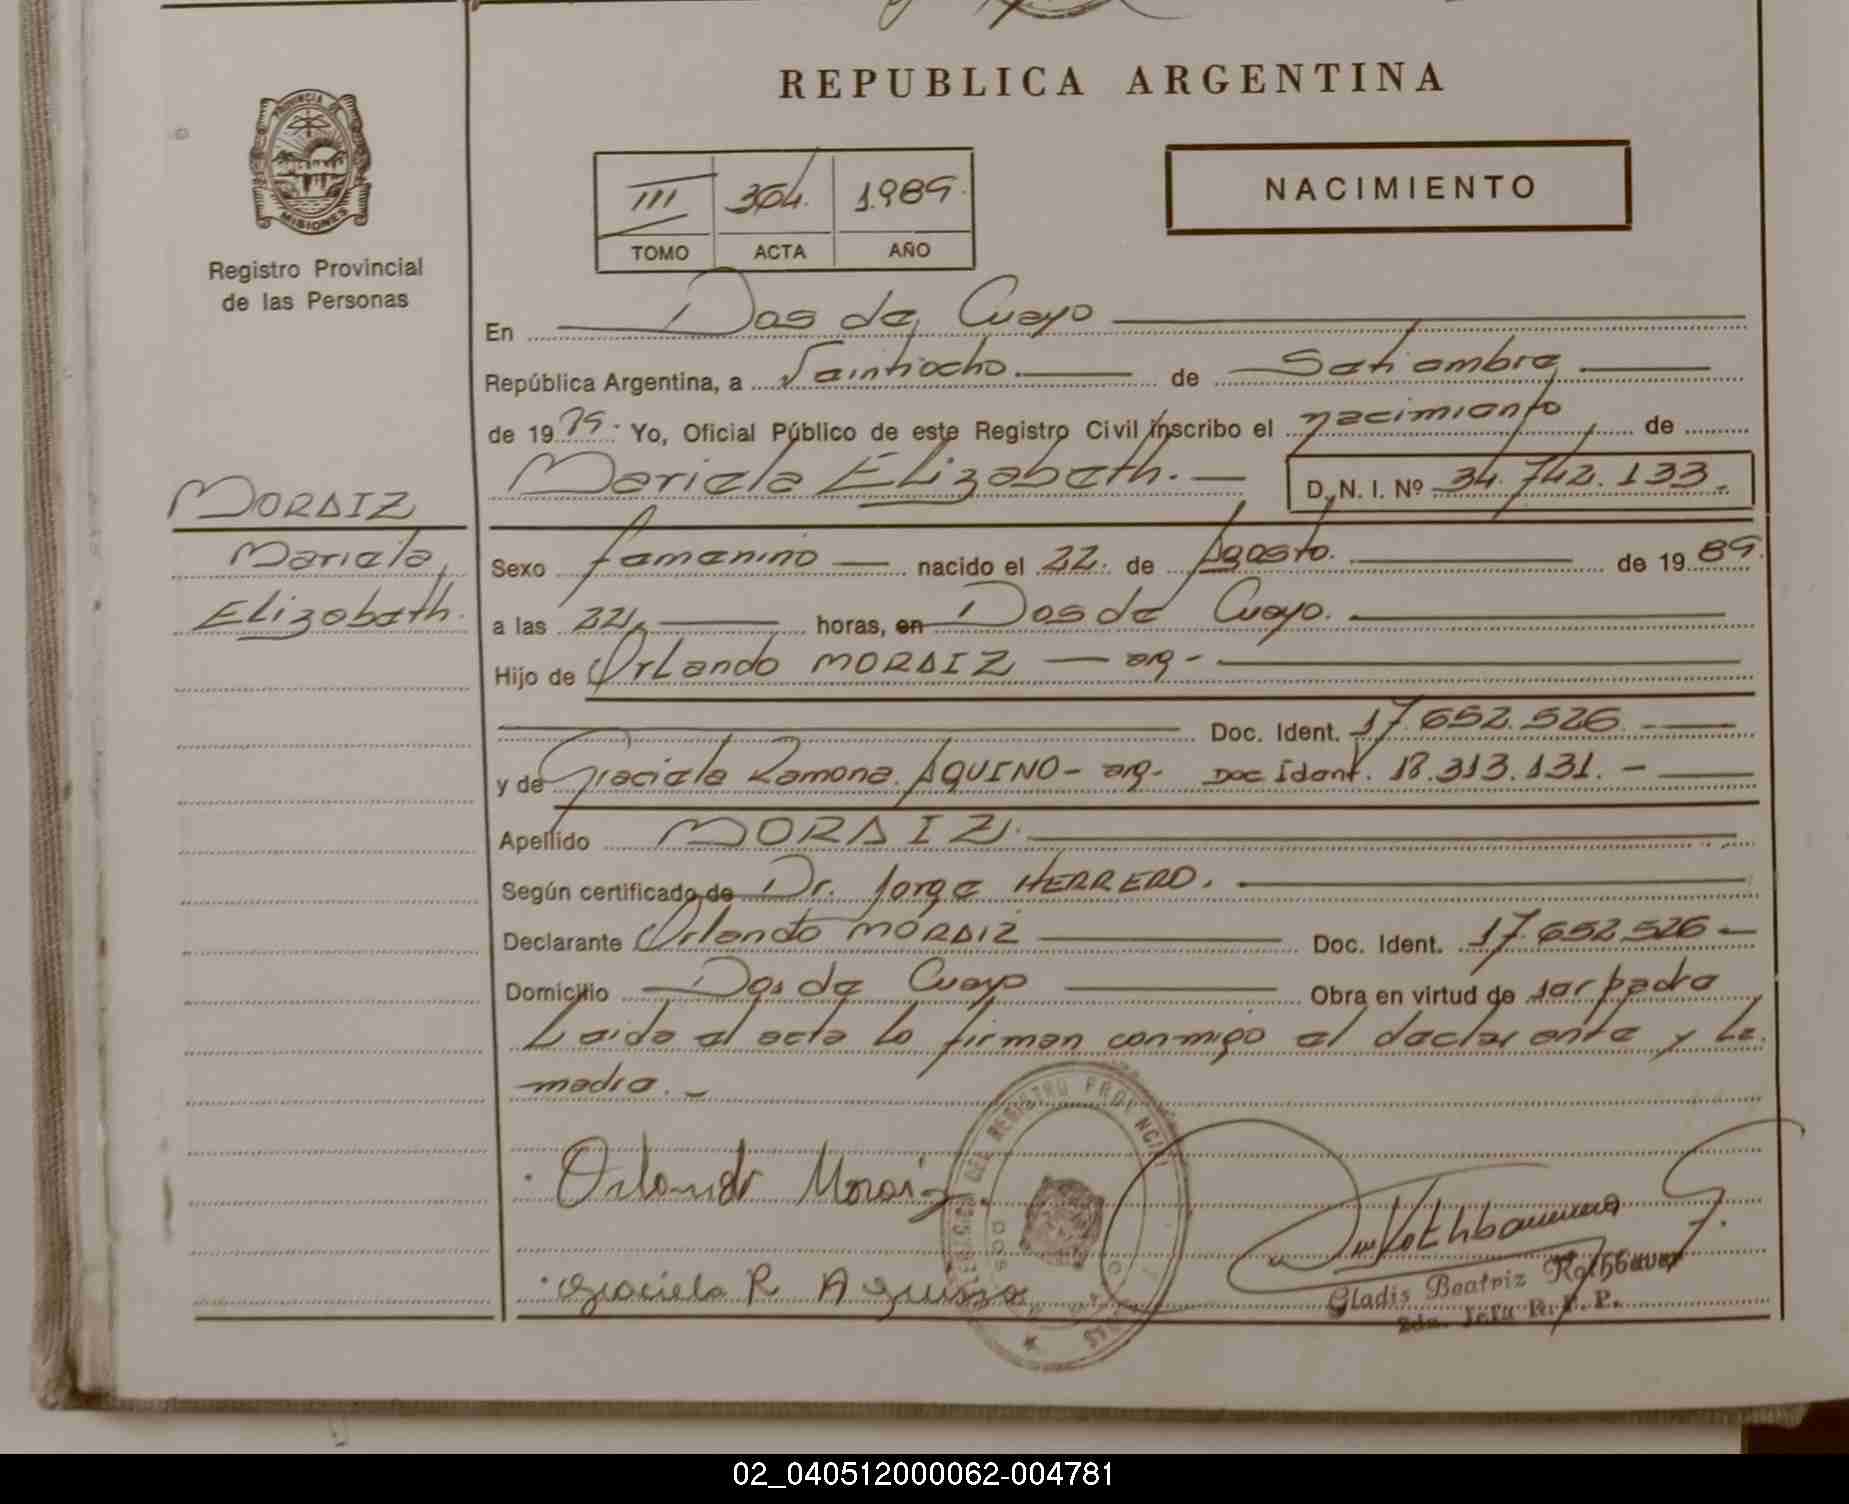 REPUBLICA ARGENTINA
PROVINCIA DE MISIONES
Registro Provincial
de las Personas
III 304. 1.989.
TOMO ACTA AÑO
NACIMIENTO
En Dos de Mayo
República Argentina, a Veintiocho de Setiembre
de 19 Yo, Oficial Público de este Registro Civil inscribo el nacimiento de
Mariela Elizabeth. D. N. I. Nº 34.742.133.-
MORAIZ
Mariela
Elizabeth.
Sexo femenino nacido el 22. de Agosto. de 19 89.
a las 22, horas, en
Hijo de Orlando MORAIZ - arg -
Doc. Ident. 17.652.526.
y de Graciela Ramona AQUINO - arg- Doc Ident. 18.313.131.-
Apellido MORAIZ.
Según certificado de Dr. Jorge HERRERO.
Declarante Orlando MORAIZ Doc. Ident. 17.652.526 -
Domicilio Obra en virtud de ser padre
Leida el acta lo firman conmigo el declarante y la
madre. -
Orlando Moraiz.
Graciela R Aquino
Gladis Beatriz Rothbauer
2da. Jefa R. P. P.
02_040512000062-004781